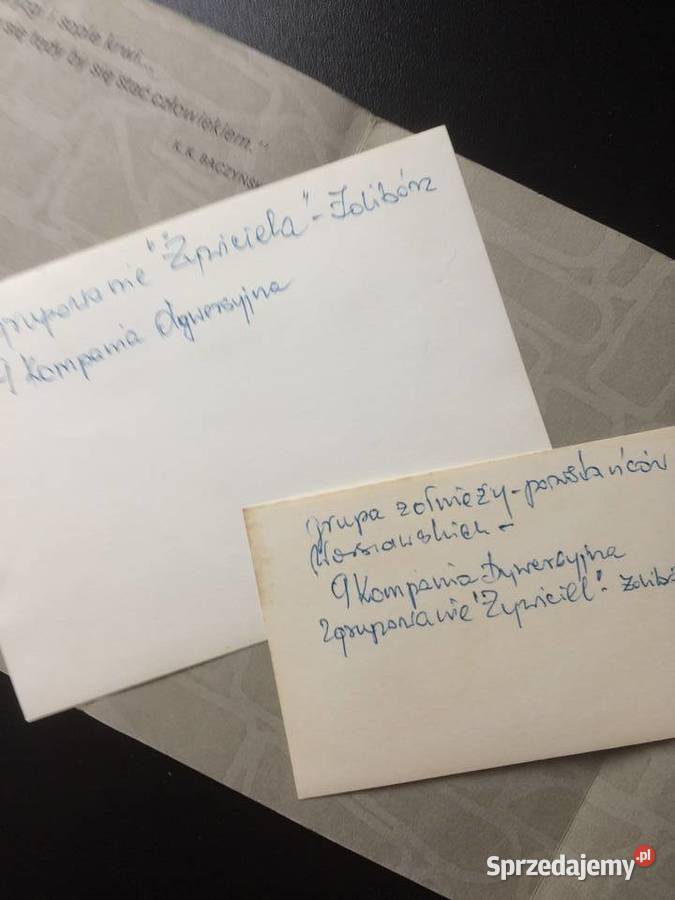 i sople krwi...
się tędy by się stać człowiekiem."
K.K. BACZYŃSK
grupowanie "Żywiciela" - Żolibórz
9 Kompania dywersyjna
grupa żołnieży - powstańców
Warszawskich -
9 Kompania dywersyjna
Zgrupowanie "Żywiciel". Żolibó
Sprzedajemy.pl